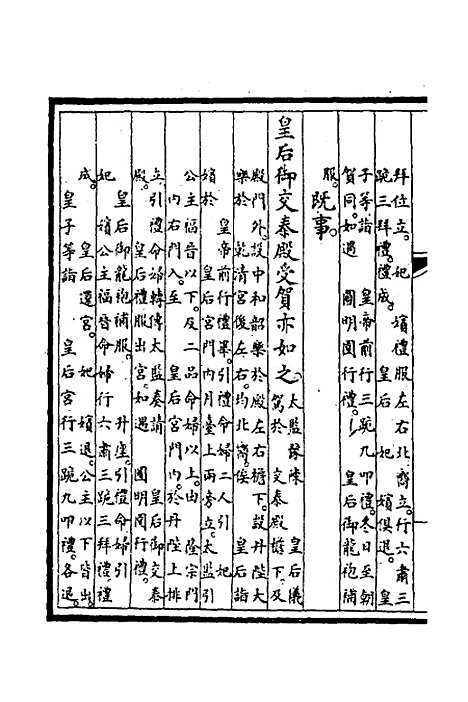 拜位立。妃　嬪禮服左右北嚮立。行六肅三
跪三拜禮。禮成。　皇后　妃　嬪俱退。皇
子等詣　皇帝前行三跪九叩禮。冬日至朝
賀同。如遇　圓明園行禮。　皇后御龍袍補
服。既事。
皇后御交泰殿受賀亦如之。太監豫陳　皇后儀
駕於　交泰殿檐下。及
殿門外。設中和韶樂於殿左右檐下。設丹陛大
樂於　乾清宮後左右。均北嚮。俟　皇后詣
皇帝前行禮畢。引禮命婦二人引　妃
嬪於　皇后宮門內月臺上兩旁立。太監引
公主福晉以下。及二品命婦以上。由　隆宗門
內右門入。至　皇后宮門內。於丹陛上排
立。引禮命婦轉傳太監奏請　皇后御交泰
殿。　皇后禮服出宮。如遇　圓明園行禮。
皇后御龍袍補服。　升座。引禮命婦引
妃　嬪公主福晉命婦行六肅三跪三拜禮。禮
成。　皇后還宮。　妃　嬪退。公主以下皆出。
皇子等詣　皇后宮行三跪九叩禮。各退。